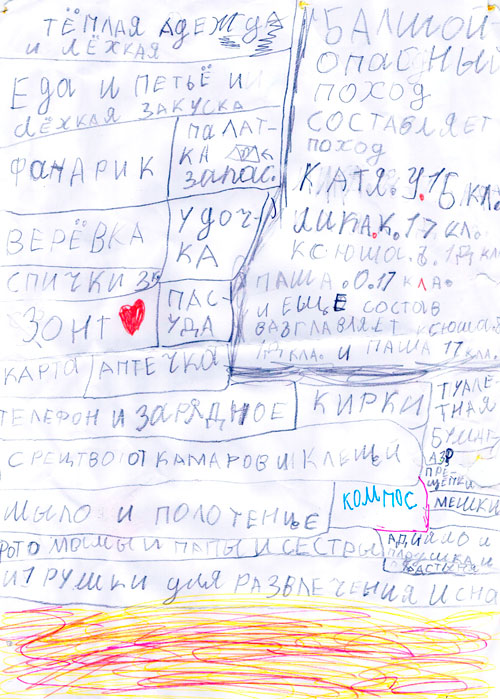 ТЁМЛАЯ АДЕЖДА
И ЛЁХКАЯ
ЕДА И ПЕТЬЁ И
ЛЁХКАЯ ЗАКУСКА
ФАНАРИК
ПАЛАТ-
КА
ЗАПАС.
ВЕРЁВКА
УДОЧ-
КА
СПИЧКИ
ЗОНТ
ПАС-
УДА
КАРТА
АПТЕЧКА
БАЛШОЙ
ОПАСНЫЙ
ПОХОД
СОСТАВЛЯЕТ
ПОХОД
КАТЯ.У.1Б КЛА.
К.17 КЛА.
КСЮША.
ПАША.О.17 КЛА.
И ЕЩЕ СОСТАВ
ВАЗГЛАВЛЯЕТ КСЮША
КЛА. И ПАША 17 КЛА.
ТЕЛЕФОН И ЗАРЯДНОЕ
КИРКИ
ТУАЛЕ
ТНАЯ
БУМАГ
СРЕЦТВО ОТ КАМАРОВ И КЛЕЩЕЙ
ПРЕ-
ЩЕПКИ
МЫЛО И ПОЛОТЕНЬЦЕ
КОМПОС
МЕШКИ
ФОТО МАМЫ И ПАПЫ И СЕСТРЫ
АДИЯЛО И
ИГРУШКИ ДЛЯ РАЗВЛЕЧЕНИЯ И СНА